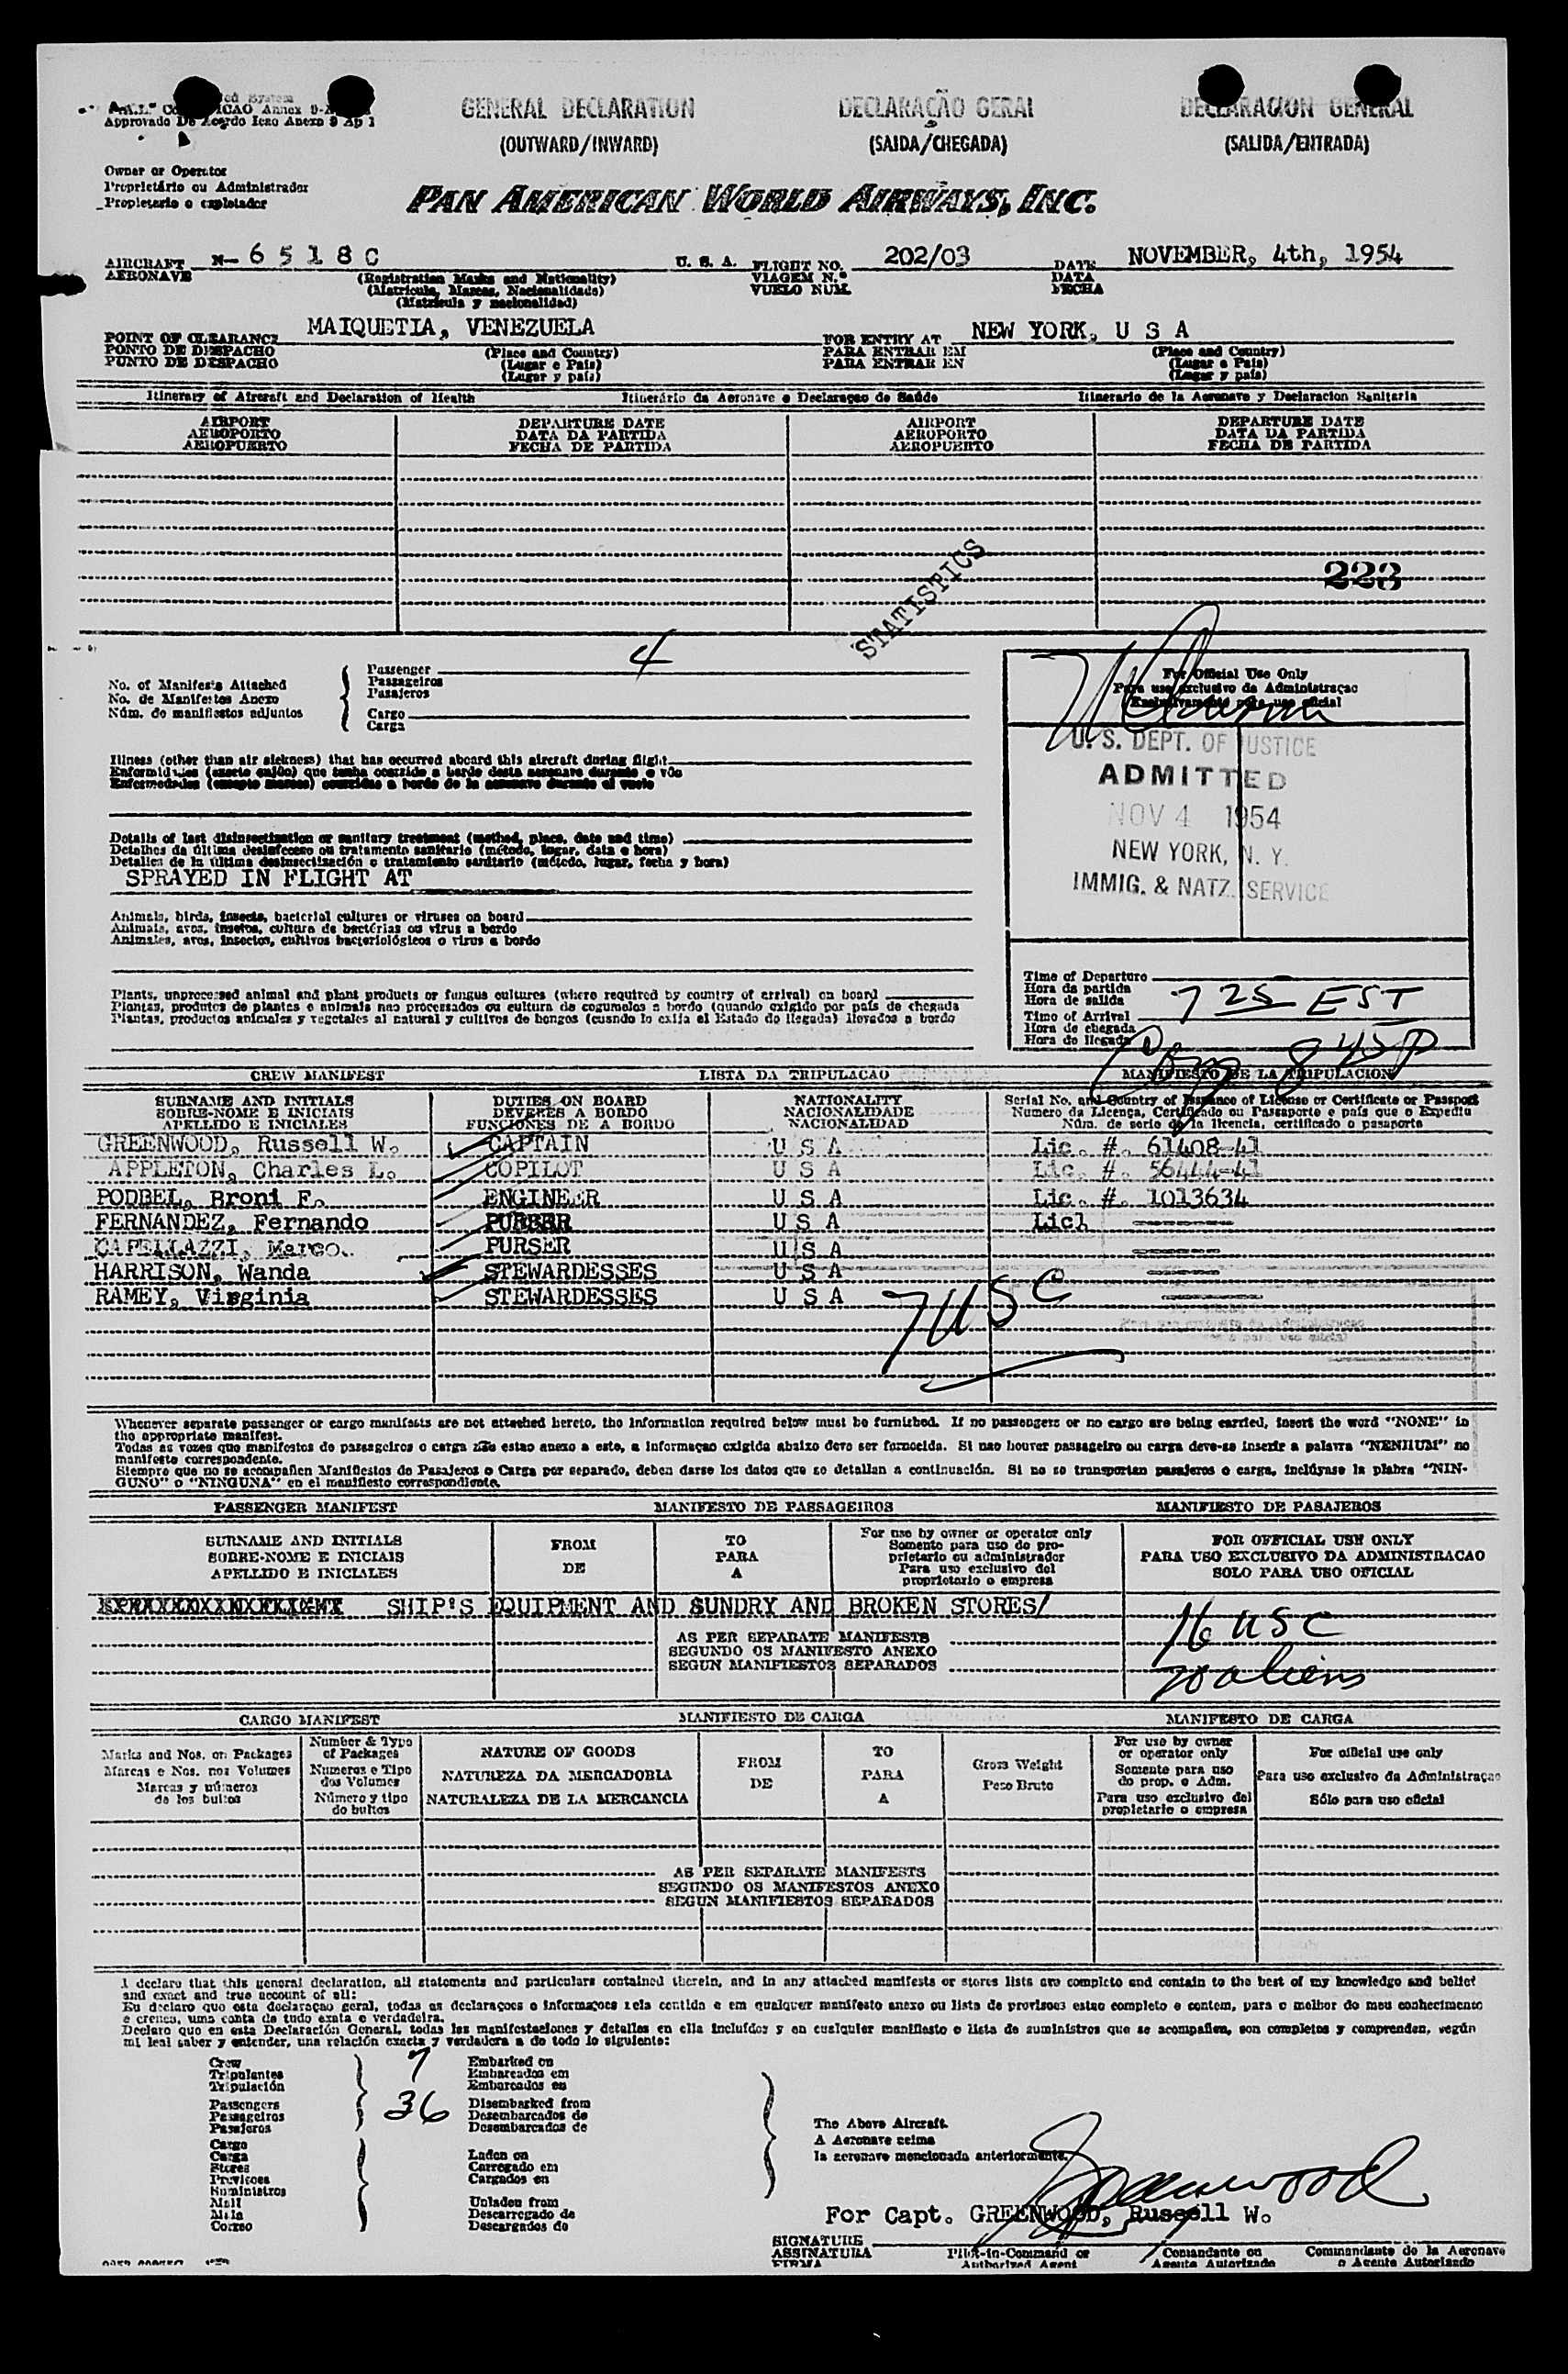 Approvado De Acordo Icao Anexo 9 Ap 1
GENERAL DECLARATION
(OUTWARD/INWARD)
DECLARAÇÃO GERAL
(SAIDA/CHEGADA)
DECLARACION GENERAL
(SALIDA/ENTRADA)
Owner or Operator
Proprietário ou Administrador
Propietario o explotador
PAN AMERICAN WORLD AIRWAYS, INC.
AIRCRAFT N- 6 5 1 8 C U. S. A. FLIGHT NO. 202/03 DATE NOVEMBER, 4th, 1954
AERONAVE (Registration Marks and Nationality) VIAGEM N.º DATA
(Matricula, Marcas, Nacionalidade) VUELO NUM. FECHA
(Matricula y nacionalidad)
POINT OF CLEARANCE MAIQUETIA, VENEZUELA FOR ENTRY AT NEW YORK, U S A
PONTO DE DESPACHO (Place and Country) PARA ENTRAR EM (Place and Country)
PUNTO DE DESPACHO (Lugar e Pais) PARA ENTRAR EN (Lugar e Pais)
(Lugar y pais) (Lugar y pais)
Itinerary of Aircraft and Declaration of Health Itinerário da Aeronave e Declaraçao de Saúde Itinerario de la Aeronave y Declaracion Sanitaria
AIRPORT DEPARTURE DATE AIRPORT DEPARTURE DATE
AEROPORTO DATA DA PARTIDA AEROPORTO DATA DA PARTIDA
AEROPUERTO FECHA DE PARTIDA AEROPUERTO FECHA DE PARTIDA
STATISTICS
223
No. of Manifests Attached
No. de Manifestos Anexo
Núm. de manifiestos adjuntos
Passenger 4
Passageiros
Pasajeros
Cargo
Carga
For Official Use Only
Para uso exclusivo da Administraçao
Exclusivamente para uso oficial
U. S. DEPT. OF JUSTICE
ADMITTED
NOV 4 1954
NEW YORK, N. Y.
IMMIG. & NATZ. SERVICE
Illness (other than air sickness) that has occurred aboard this aircraft during flight
Enfermidades (exceto enjôo) que tenha ocorrido a bordo desta aeronave durante o vôo
Enfermedades (excepto mareos) ocurridas a bordo de la aeronave durante el vuelo
Details of last disinsectization or sanitary treatment (method, place, date and time)
Detalhes da última desinfeccao ou tratamento sanitario (método, lugar, data e hora)
Detalles de la última desinsectización o tratamiento sanitario (método, lugar, fecha y hora)
SPRAYED IN FLIGHT AT
Animals, birds, insects, bacterial cultures or viruses on board
Animais, aves, insetos, cultura de bactérias ou virus a bordo
Animales, aves, insectos, cultivos bacteriológicos o virus a bordo
Plants, unprocessed animal and plant products or fungus cultures (where required by country of arrival) on board
Plantas, produtos de plantas e animais nao processados ou cultura de cogumelos a bordo (quando exigido por país de chegada
Plantas, productos animales y vegetales al natural y cultivos de hongos (cuando lo exija el Estado de llegada) llevados a bordo
Time of Departure
Hora da partida
Hora de salida
Time of Arrival
Hora de chegada
Hora de llegada
7 25 EST
8 45 P
CREW MANIFEST LISTA DA TRIPULACAO MANIFIESTO DE LA TRIPULACION
SURNAME AND INITIALS DUTIES ON BOARD NATIONALITY Serial No. and Country of Issuance of License or Certificate or Passport
SOBRE-NOME E INICIAIS DEVERES A BORDO NACIONALIDADE Numero da Licença, Certificado ou Passaporte e país que o Expediu
APELLIDO E INICIALES FUNCIONES DE A BORDO NACIONALIDAD Núm. de serie de la licencia, certificado o pasaporte
GREENWOOD, Russell W. CAPTAIN U S A Lic. #. 61408-41
APPLETON, Charles L. COPILOT U S A Lic. #. 56444-41
PODBEL, Broni F. ENGINEER U S A Lic. #. 1013634
FERNANDEZ, Fernando PURSER U S A Licl
CAPELLAZZI, Marco. PURSER U S A
HARRISON, Wanda STEWARDESSES U S A
RAMEY, Virginia STEWARDESSES U S A
7 USC
Whenever separate passenger or cargo manifests are not attached hereto, the information required below must be furnished. If no passengers or no cargo are being carried, insert the word "NONE" in
the appropriate manifest.
Todas as vezes que manifestos de passageiros o carga não estao anexo a este, a informaçao exigida abaixo deve ser fornecida. Si nao houver passageiro ou carga deve-se inserir a palavra "NENHUM" no
manifesto correspondente.
Siempre que no se acompañen Manifiestos de Pasajeros o Carga por separado, deben darse los datos que se detallan a continuación. Si no se transportan pasajeros o carga, inclúyase la plabra "NIN-
GUNO" o "NINGUNA" en el manifiesto correspondiente.
PASSENGER MANIFEST MANIFESTO DE PASSAGEIROS MANIFIESTO DE PASAJEROS
SURNAME AND INITIALS FROM TO For use by owner or operator only FOR OFFICIAL USE ONLY
SOBRE-NOME E INICIAIS PARA Somente para uso do pro- PARA USO EXCLUSIVO DA ADMINISTRACAO
APELLIDO E INICIALES DE A prietario ou administrador SOLO PARA USO OFICIAL
Para uso exclusivo del
propietario o empresa
SHIP'S EQUIPMENT AND SUNDRY AND BROKEN STORES/
16 USC
20 aliens
AS PER SEPARATE MANIFESTS
SEGUNDO OS MANIFESTO ANEXO
SEGUN MANIFIESTOS SEPARADOS
CARGO MANIFEST MANIFIESTO DE CARGA MANIFESTO DE CARGA
Marks and Nos. on Packages
Marcas e Nos. nos Volumes
Marcas y números
de los bultos
Number & Type
of Packages
Numeros e Tipo
dos Volumes
Número y tipo
de bultos
NATURE OF GOODS
NATUREZA DA MERCADORIA
NATURALEZA DE LA MERCANCIA
FROM
DE
TO
PARA
A
Gross Weight
Peso Bruto
For use by owner
or operator only
Somente para uso
do prop. e Adm.
Para uso exclusivo del
propietario o empresa
For official use only
Para uso exclusivo da Administraçao
Sólo para uso oficial
AS PER SEPARATE MANIFESTS
SEGUNDO OS MANIFESTOS ANEXO
SEGUN MANIFIESTOS SEPARADOS
I declare that this general declaration, all statements and particulars contained therein, and in any attached manifests or stores lists are complete and contain to the best of my knowledge and belief
and exact and true account of all:
Eu declaro que esta declaraçao geral, todas as declaraçoes e informaçoes nela contida e em qualquer manifesto anexo ou lista de provisoes estao completo e contem, para o melhor do meu conhecimento
e crenca, uma conta de tudo exata e verdadeira.
Declaro que en esta Declaración General, todas las manifestaciones y detalles en ella incluídos y en cualquier manifiesto o lista de suministros que se acompañen, son completos y comprenden, según
mi leal saber y entender, una relación exacta y verdadera a de todo lo siguiente:
Crew
Tripulantes
Tripulación
7
Embarked on
Embarcados em
Embarcados en
Passengers
Passageiros
Pasajeros
36
Disembarked from
Desembarcados de
Desembarcados de
Cargo
Carga
Stores
Provicoes
Suministros
Mail
Mala
Correo
Laden on
Carregado em
Cargados en
Unladen from
Descarregado de
Descargados de
The Above Aircraft.
A Aeronave acima
la aeronave mencionada anteriormente.
Greenwood
For Capt. GREENWOOD, Russell W.
SIGNATURE
ASSINATURA
FIRMA
Pilot-in-Command or
Authorized Agent
Comandante ou
Agente Autorizado
Commandante de la Aeronave
o Agente Autorizado